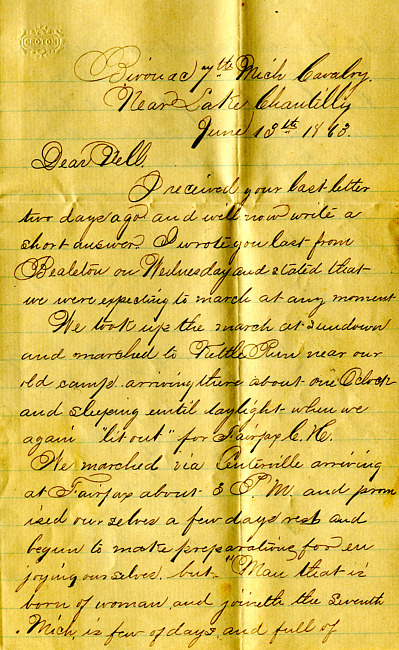 CROTON
Bivouac 7th Mich Cavalry.
Near Lake Chantilly
June 13th 1863.
Dear Nell.
I received your last letter
two days ago and will now write a
short answer. I wrote you last from
Bealeton on Wednesday and stated that
we were expecting to march at any moment
We took up the march at sundown
and marched to Kettle Run near our
old camp. arriving there about one Oclock
and sleeping until daylight when we
again "lit out" for Fairfax C. H.
We marched via Centerville arriving
at Fairfax about 3 P. M. and prom
ised ourselves a few days rest and
begun to make preparations for en
joying ourselves. but "Man that is
born of woman and joineth the Seventh
Mich. is few of days, and full of